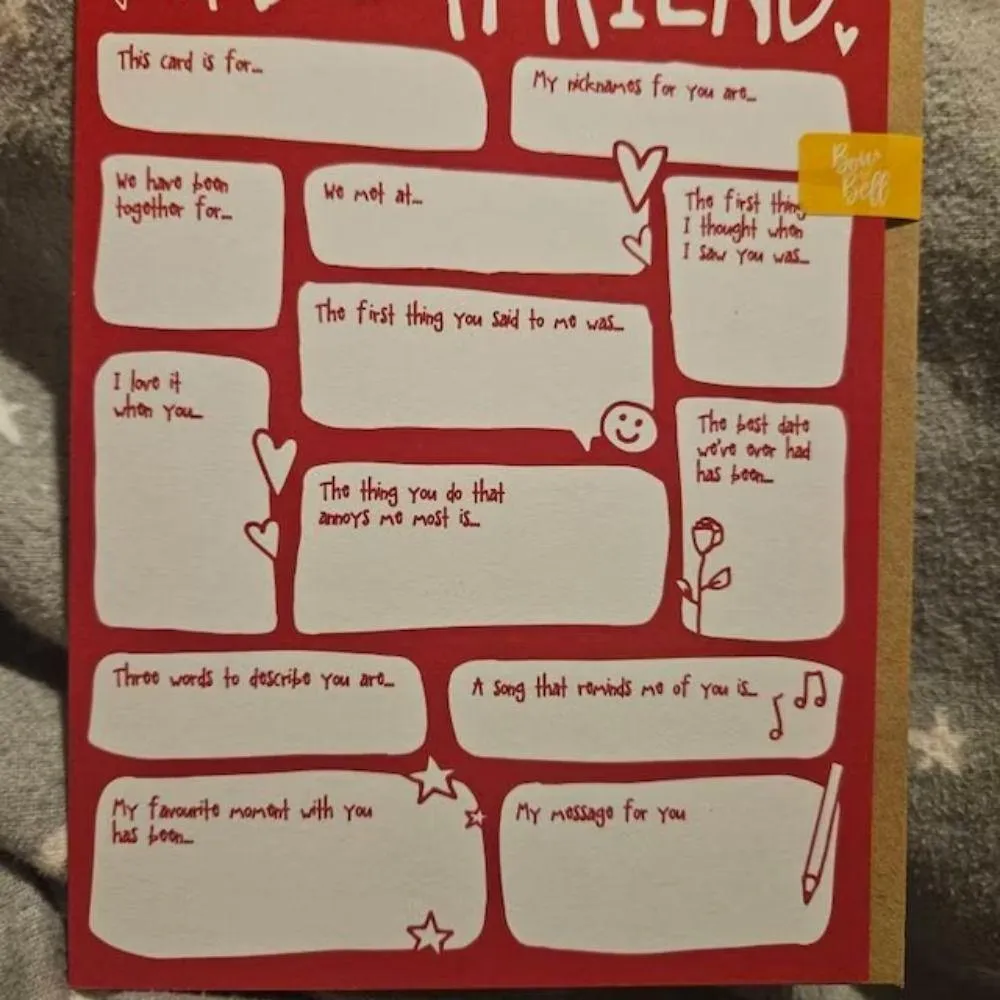 FRIEND
This card is for...
My nicknames for you are...
We have been
together for...
We met at...
The first thing
I thought when
I saw you was...
Bow
Bell
The first thing you said to me was...
I love it
when you...
The best date
we've ever had
has been...
The thing you do that
annoys me most is...
Three words to describe you are...
A song that reminds me of you is...
My favourite moment with you
has been...
My message for you